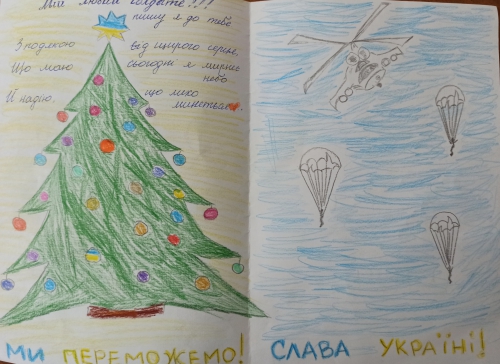 Мій любий солдате!!!
пишу я до тебе
З подякою від щирого серця,
Що маю сьогодні я мирне
небо
Й надію, що лихо
минеться.
МИ ПЕРЕМОЖЕМО!
СЛАВА УКРАЇНІ!